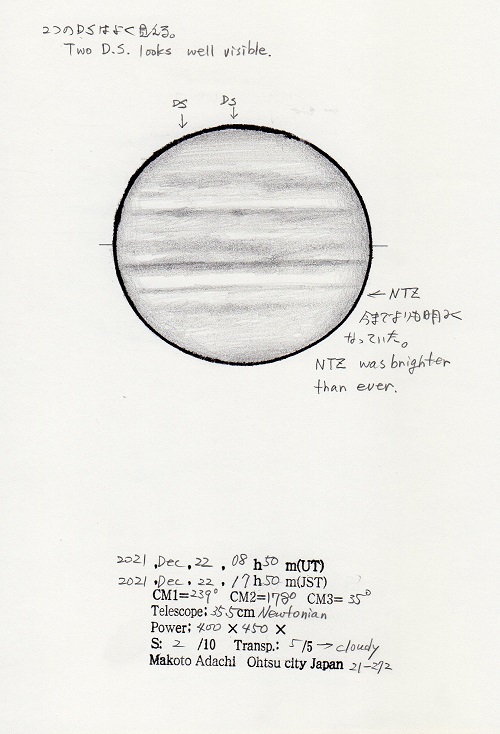 2つのDSはよく見える。
Two D.S. looks well visible.
DS DS
← NTZ
今までよりも明るく
なっていた。
NTZ was brighter
than ever.
2021 , Dec , 22 , 08 h 50 m(UT)
2021 , Dec , 22 , 17 h 50 m(JST)
CM1= 239° CM2= 178° CM3= 35°
Telescope: 35.5cm Newtonian
Power: 400 × 450 ×
S: 2 /10 Transp.: 5/5 → cloudy
Makoto Adachi Ohtsu city Japan 21-272